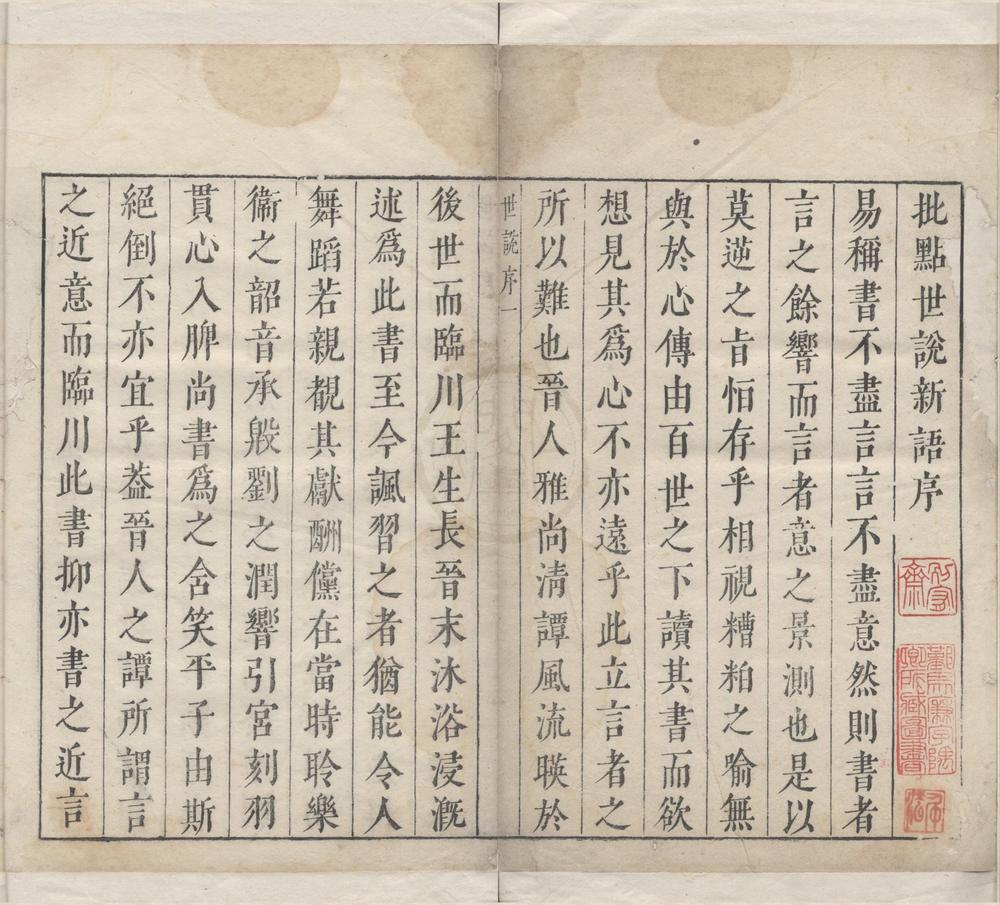 批點世說新語序
易稱書不盡言言不盡意然則書者
言之餘響而言者意之景測也是以
莫逆之旨怕存乎相視糟粕之喻無
與於心傳由百世之下讀其書而欲
想見其爲心不亦遠乎此立言者之
所以難也晉人雅尚清譚風流暎於
世說序 一
後世而臨川王生長晉末沐浴浸漑
述爲此書至今諷習之者猶能令人
舞蹈若親覩其獻酬儻在當時聆樂
衞之韶音承殷劉之潤響引宮刻羽
貫心入脾尚書爲之含笑平子由斯
絕倒不亦宜乎葢晉人之譚所謂言
之近意而臨川此書抑亦書之近言